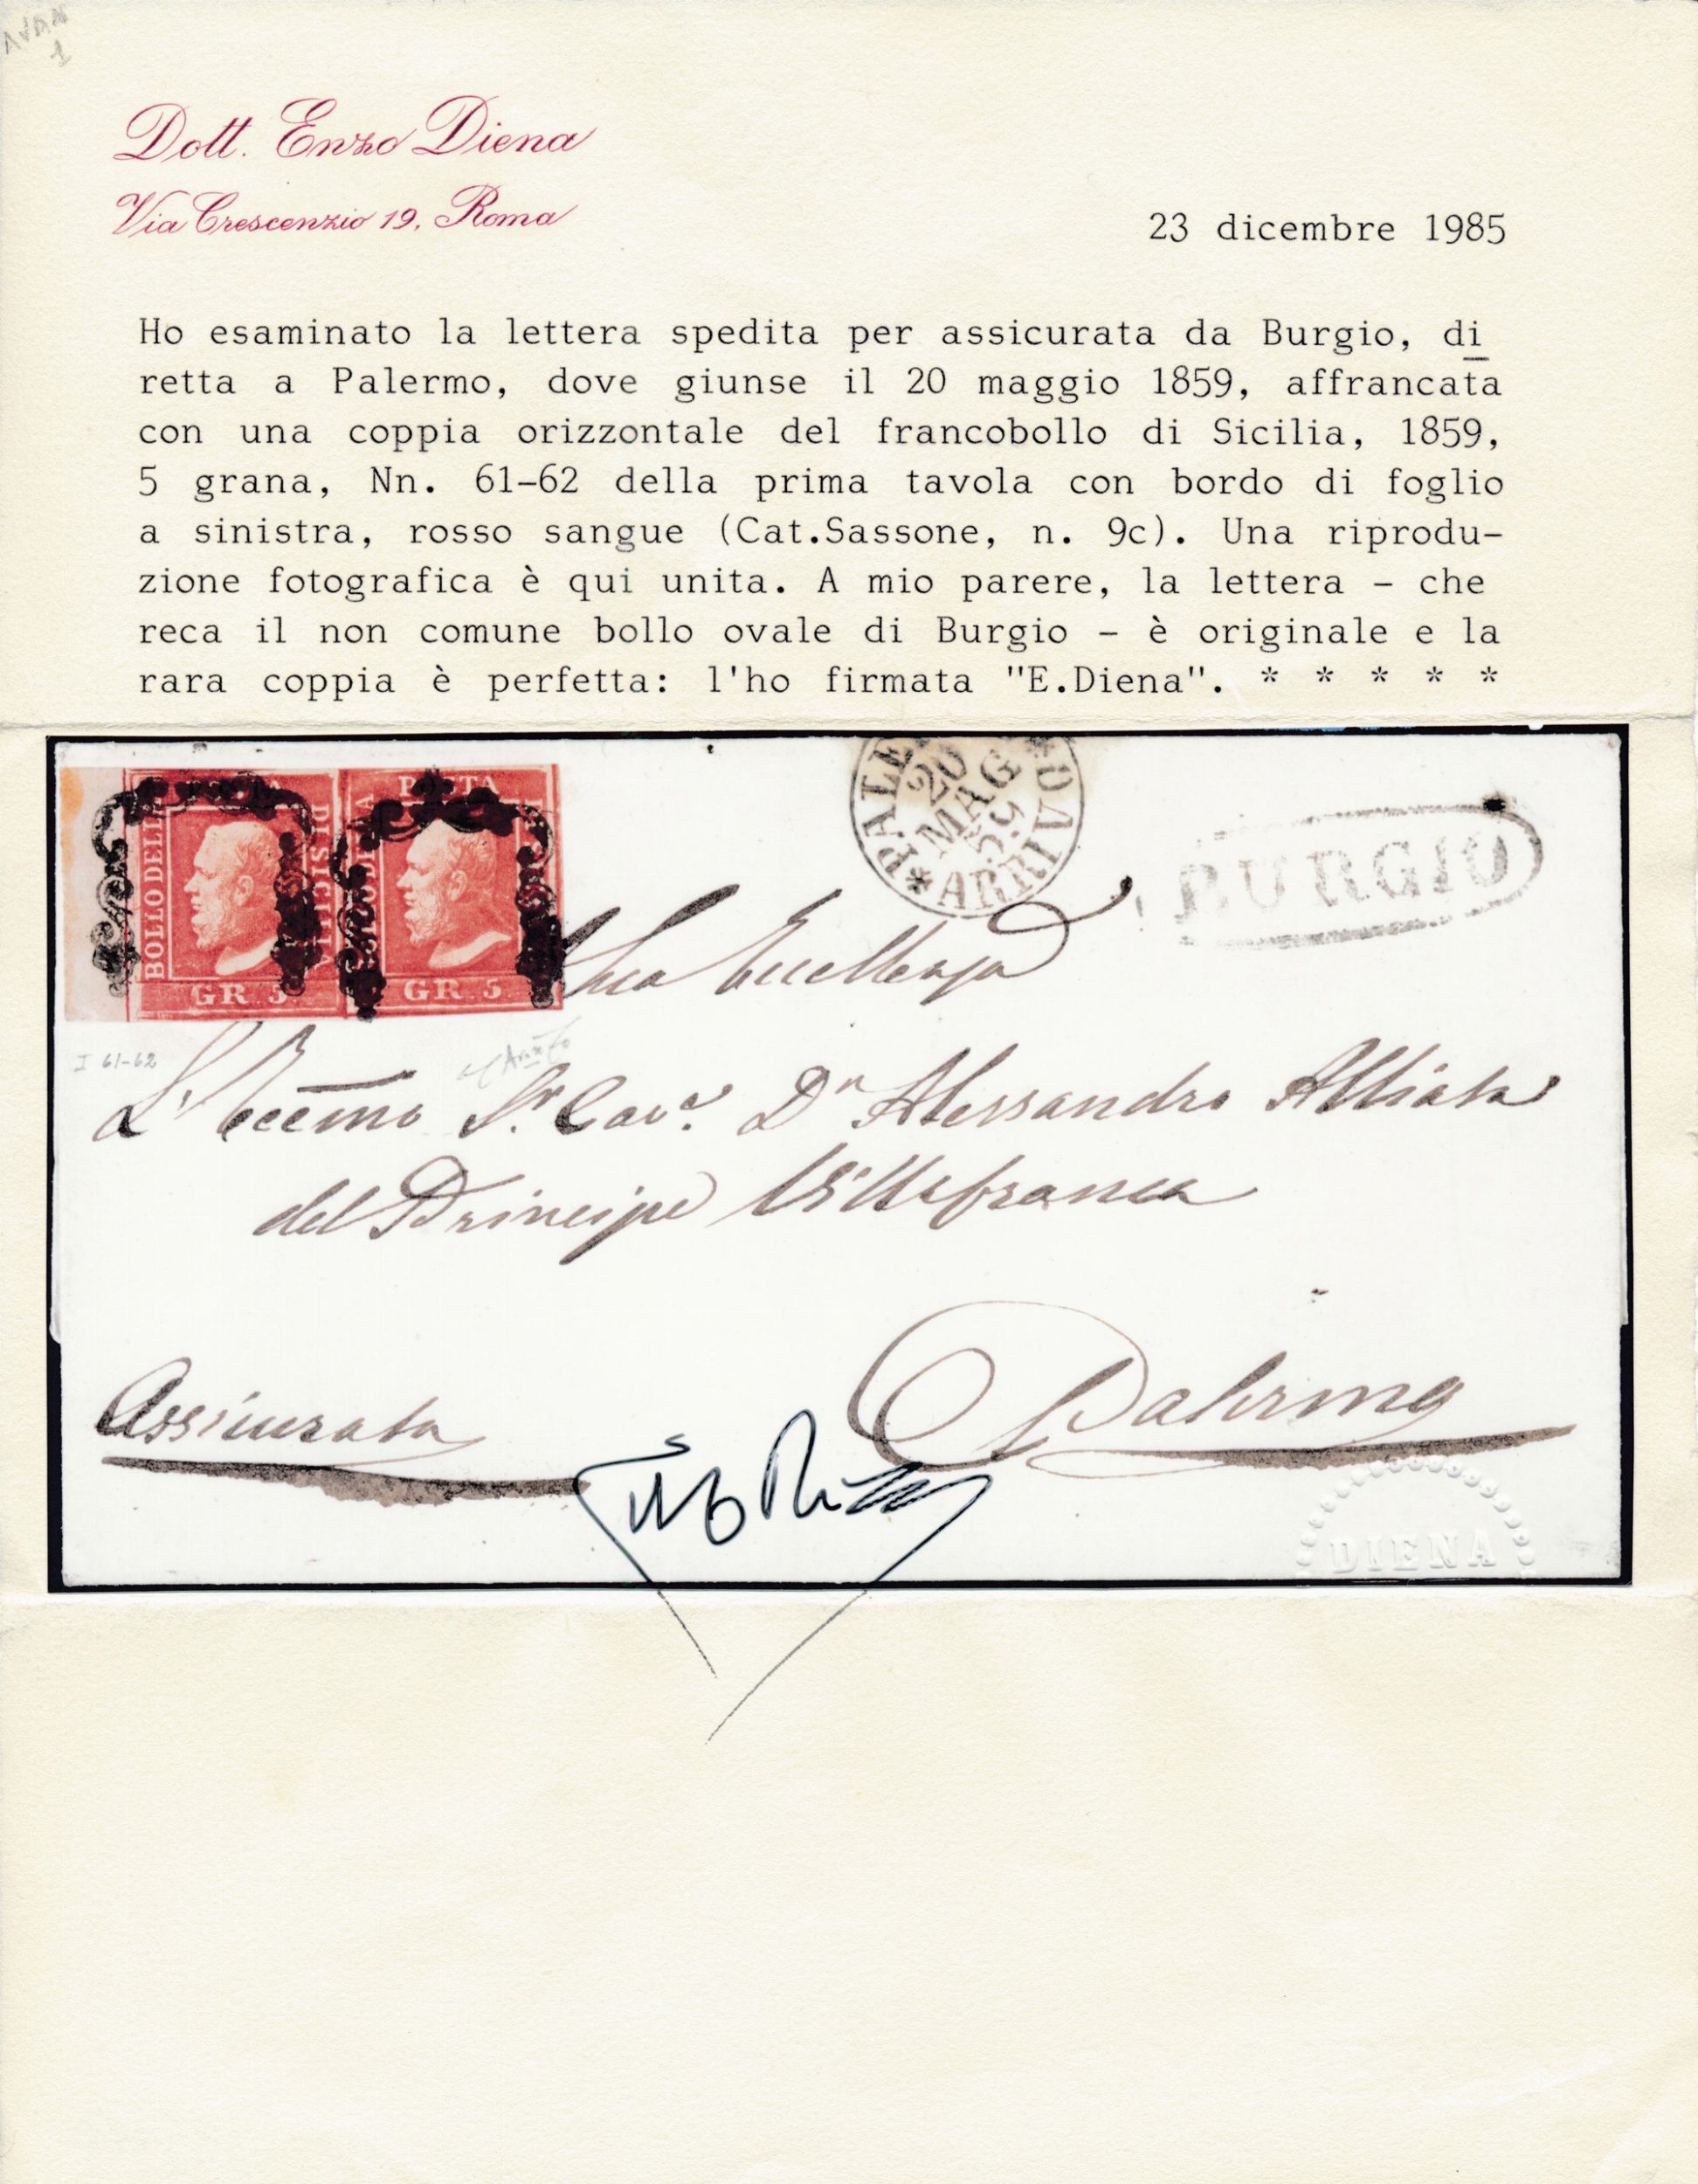 Dott. Enzo Diena
Via Crescenzio 19, Roma
23 dicembre 1985
Ho esaminato la lettera spedita per assicurata da Burgio, di
retta a Palermo, dove giunse il 20 maggio 1859, affrancata
con una coppia orizzontale del francobollo di Sicilia, 1859,
5 grana, Nn. 61-62 della prima tavola con bordo di foglio
a sinistra, rosso sangue (Cat.Sassone, n. 9c). Una riprodu-
zione fotografica è qui unita. A mio parere, la lettera - che
reca il non comune bollo ovale di Burgio - è originale e la
rara coppia è perfetta: l'ho firmata "E.Diena". * * * * *
POSTA
BOLLO DELLA
DI SICILIA
GR. 5
POSTA
GR. 5
PALE
20
MAG
59
ARRIVO
BURGIO
Sua Eccellenza
I 61-62
L'Eccēmo Sr. Cavr. Dn Alessandro Alliata
del Principe Villafranca
Assicurata
Palermo
DIENA